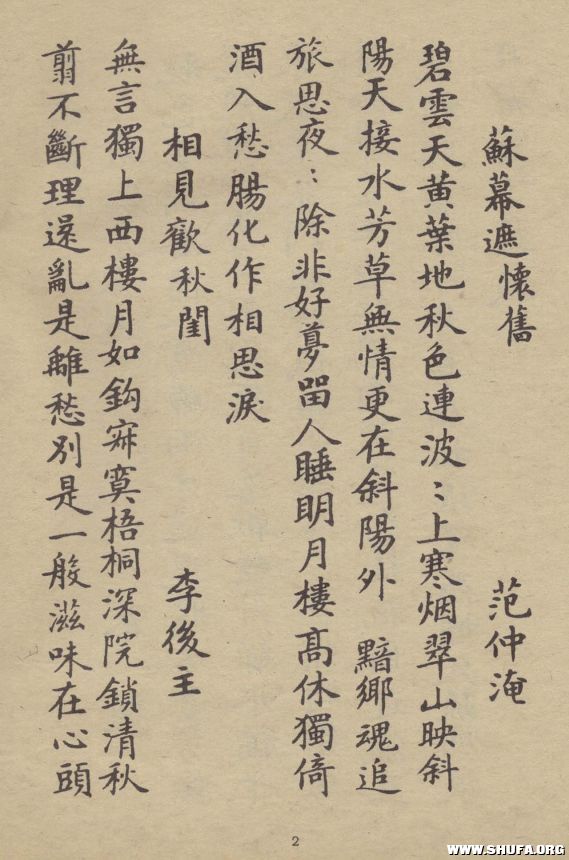 蘇幕遮懷舊 范仲淹
碧雲天黄葉地秋色連波〻上寒烟翠山映斜
陽天接水芳草無情更在斜陽外 黯鄉魂追
旅思夜〻除非好夢畱人睡明月樓高休獨倚
酒入愁腸化作相思淚
相見歡秋閨 李後主
無言獨上西樓月如鈎寂寞梧桐深院鎖清秋
翦不斷理還亂是離愁別是一般滋味在心頭
2
WWW.SHUFA.ORG